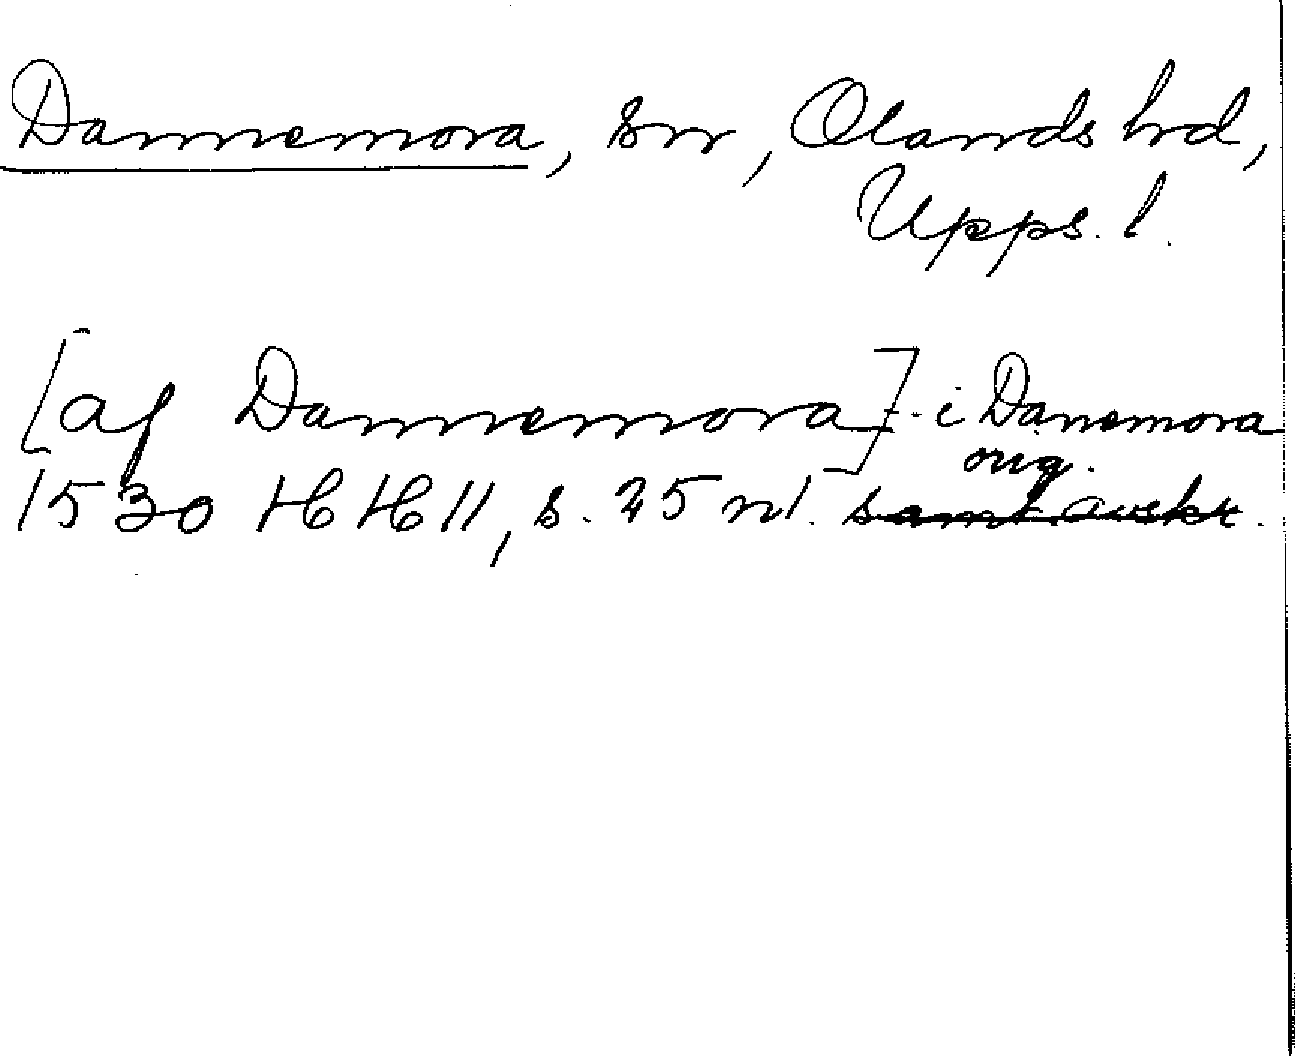 Dannemora, sn, Olands hd,
Upps. l.
[af Dannemora] - i Danemora
orig.
1530 HH 11, s. 25 nt. samt. avskr.